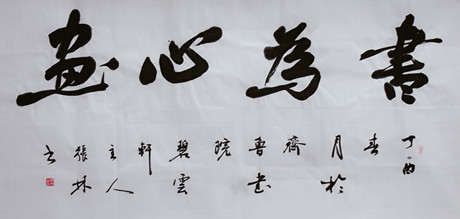 書為心畫
丁酉
春
月於
齊
魯書
曉
碧雲
軒
主人
張林
书